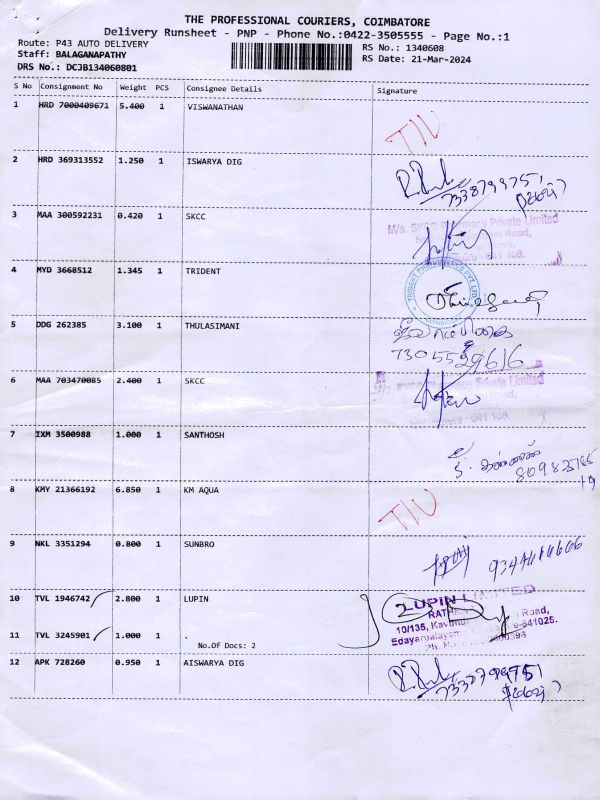 THE PROFESSIONAL COURIERS, COIMBATORE
Delivery Runsheet - PNP - Phone No.:0422-3505555 - Page No.:1
Route: P43 AUTO DELIVERY RS No.: 1340608
Staff: BALAGANAPATHY RS Date: 21-Mar-2024
DRS No.: DCJB134060801
S No Consignment No Weight PCS Consignee Details Signature
1 HRD 7000409671 5.400 1 VISWANATHAN
2 HRD 369313552 1.250 1 ISWARYA DIG
7338799751
3 MAA 300592231 0.420 1 SKCC
M/s. SKCC Pharmacy Private Limited
Road,
641 108.
4 MYD 3668512 1.345 1 TRIDENT
TRIDENT PVT. LTD.
5 DDG 262385 3.100 1 THULASIMANI
6 MAA 703470085 2.400 1 SKCC
Pharmacy Private Limited
641 108.
7 IXM 3500988 1.000 1 SANTHOSH
8 KMY 21366192 6.850 1 KM AQUA
9 NKL 3351294 0.800 1 SUNBRO
10 TVL 1946742 2.800 1 LUPIN
LUPIN LIMITED
10/135, Road,
641025.
11 TVL 3245901 1.000 1 .
No.Of Docs: 2
12 APK 728260 0.950 1 AISWARYA DIG